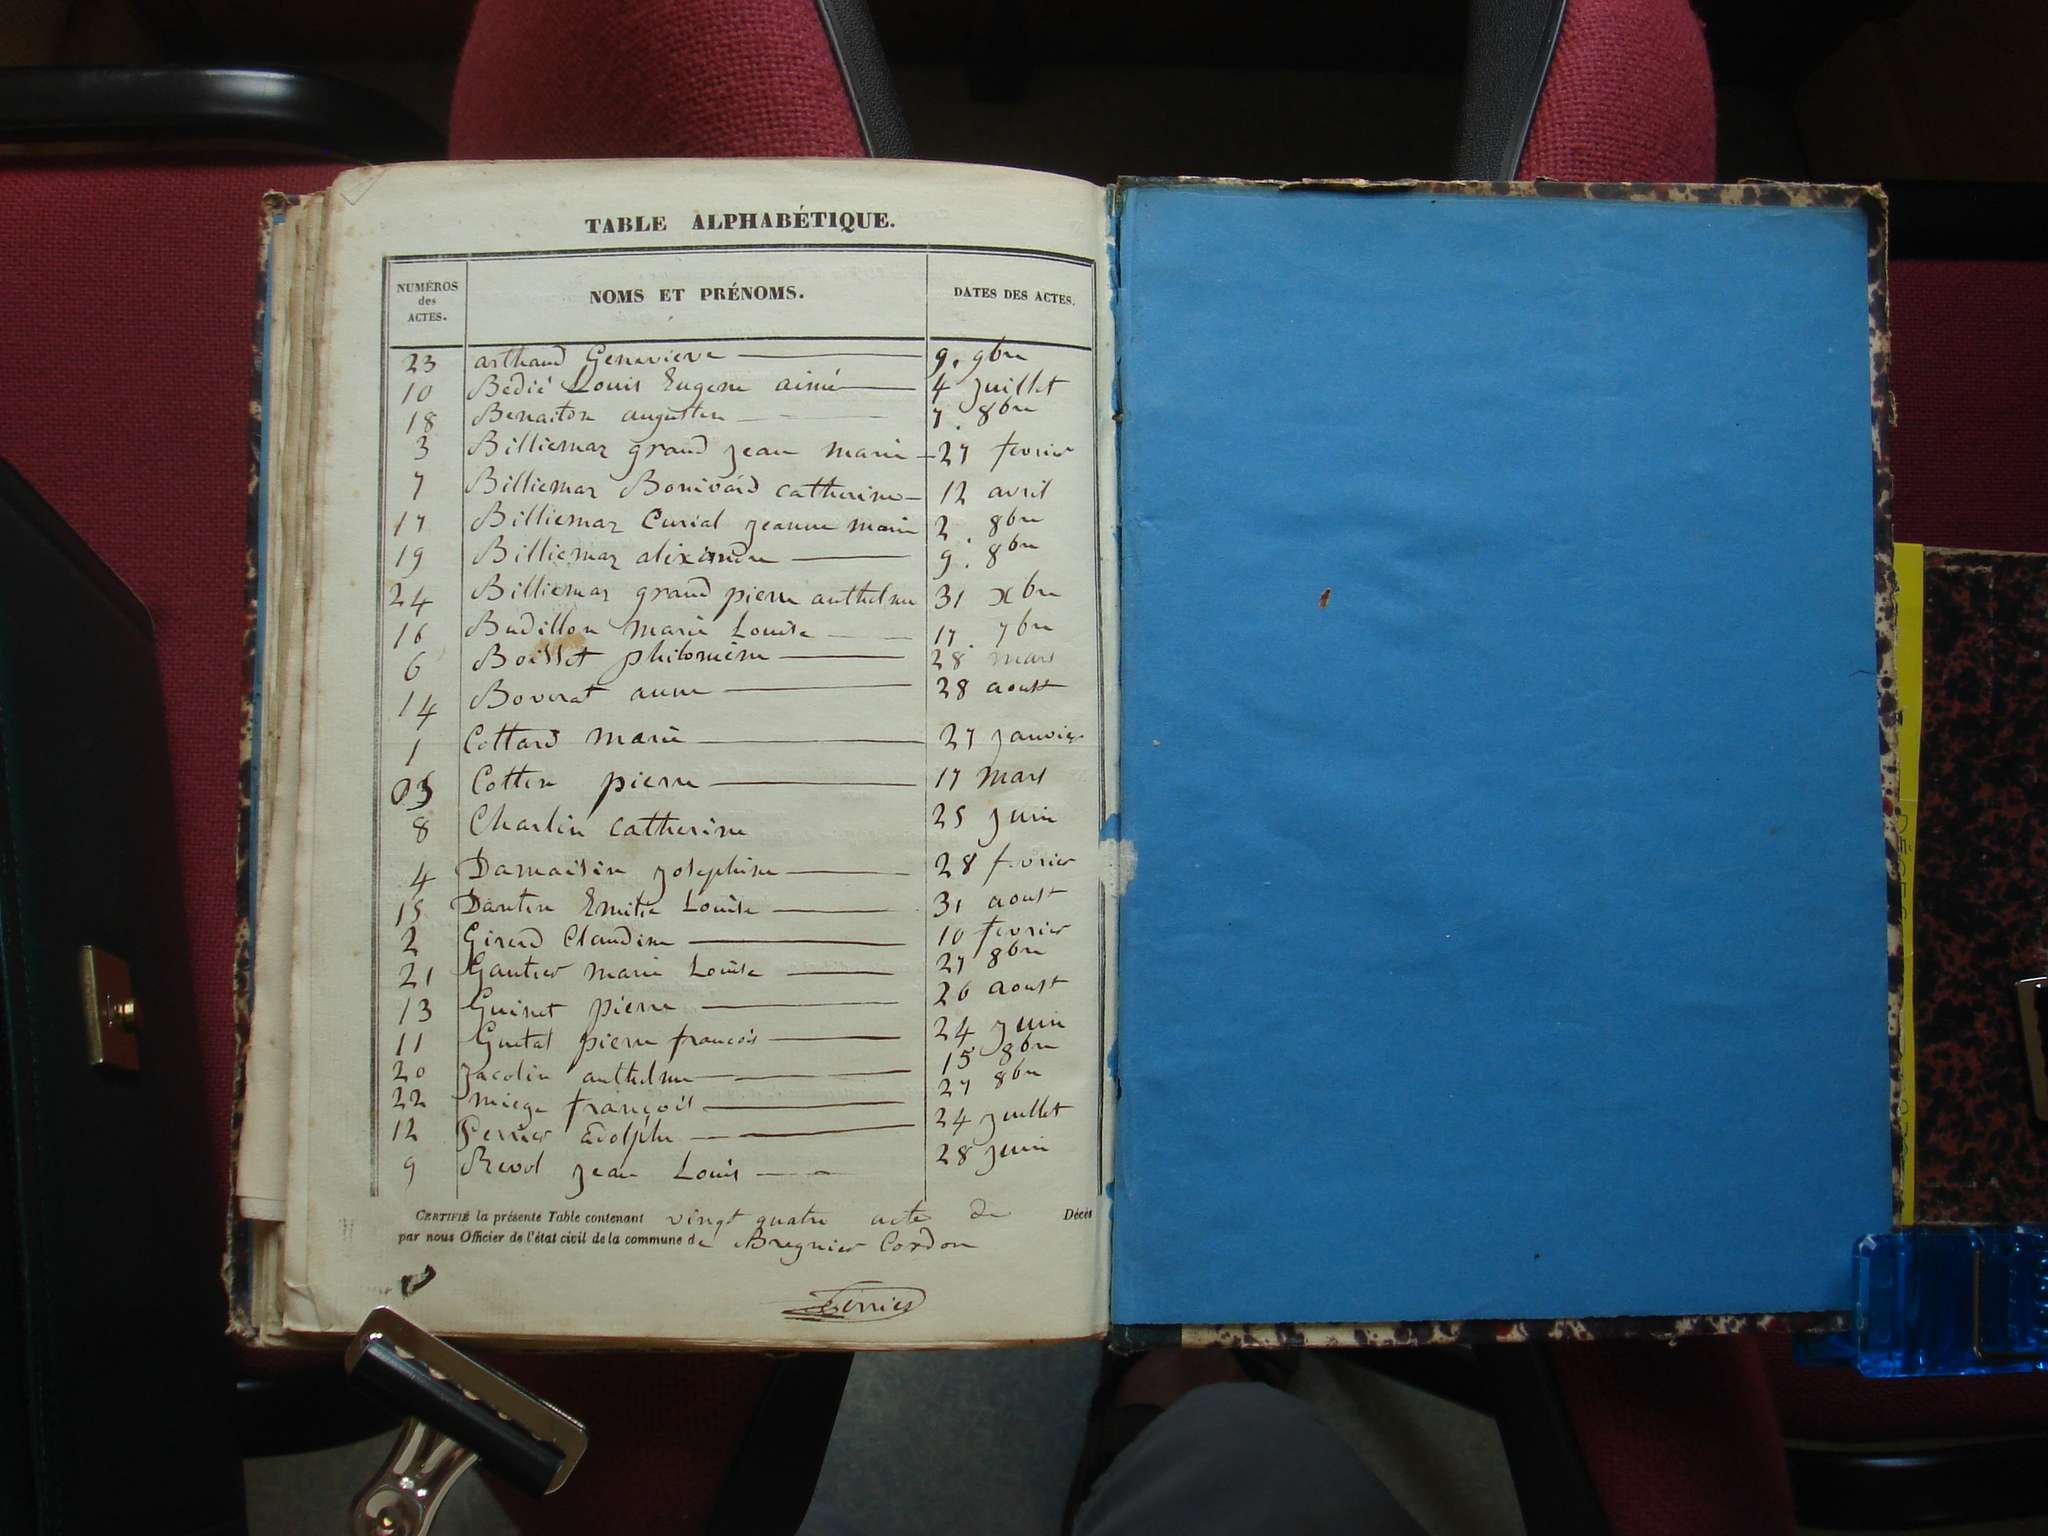 TABLE ALPHABÉTIQUE.
NUMÉROS des ACTES. NOMS ET PRÉNOMS. DATES DES ACTES.
23 arthaud Genevieve 9. 9bre
10 Bedié Louis Eugene aimé 4 juillet
18 Benaiton augustin 7. 8bre
3 Billiemaz grand jean marie 27 fevrier
7 Billiemaz Bonivard catherine 12 avril
17 Billiemaz Curial jeanne marie 2. 8bre
19 Billiemaz alixandre 9. 8bre
24 Billiemaz grand pierre anthelme 31 xbre
16 Budillon marie Louise 17 7bre
6 Boisset philomène 28 mars
14 Boverat anne 28 aoust
1 Cottard marie 27 janvier
5 Cottin pierre 17 mars
8 Charlin catherine 25 juin
4 Damaisin josephine 28 fevrier
15 Dantin Emilie Louise 31 aoust
2 Girerd Claudine 10 fevrier
21 Gautier marie Louise 27 8bre
13 Guinet pierre 26 aoust
11 Guetat pierre françois 24 juin
20 jacolin anthelme 15 8bre
22 miege françois 27 8bre
12 Perrier adolphe 24 juillet
9 Revol jean Louis 28 juin
CERTIFIÉ la présente Table contenant vingt quatre acte de Décès
par nous Officier de l'état civil de la commune de Bregnier Cordon